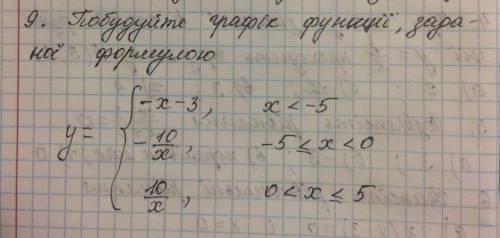 9. Побудуйте графік функції, зада-
ної формулою
y= { -x-3, x < -5
-10/x, -5 ≤ x < 0
10/x, 0 < x ≤ 5